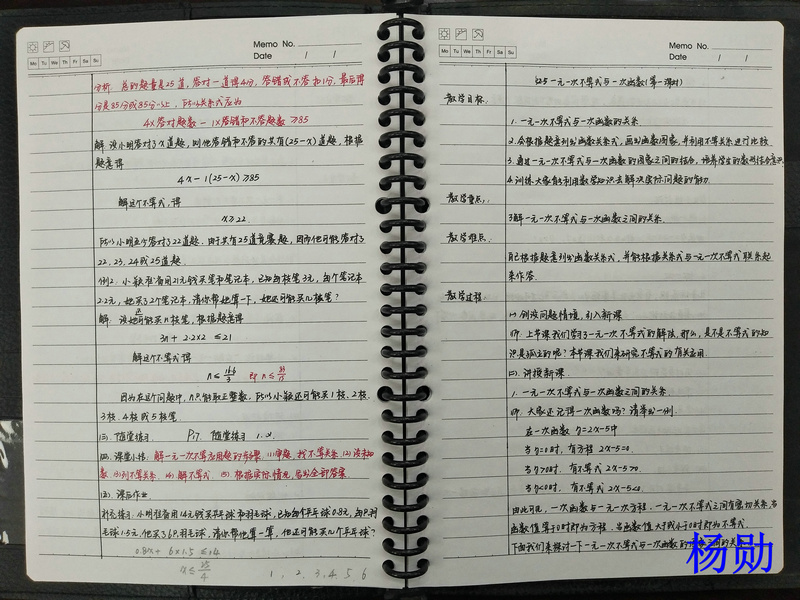 Memo No.
Date / /
Mo Tu We Th Fr Sa Su
分析:总的题量是25道,答对一道得4分,答错或不答扣1分,最后得
分是85分或85分以上,所以关系式应为
4×答对题数-1×答错和不答题数≥85
解:设小明答对了x道题,则他答错和不答的共有(25-x)道题,根据
题意得
4x-1(25-x)≥85
解这个不等式,得
x≥22.
所以小明至少答对了22道题.由于共有25道竞赛题,因而他可能答对了
22,23,24或25道题.
例2.小颖准备用21元钱买笔和笔记本,已知每枝笔3元,每个笔记本
2.2元,她买了2个笔记本,请你帮她算一下,她还可能买几枝笔?
解:设她还可能买n枝笔,根据题意得
3n+2.2×2≤21
解这个不等式得
n≤16.6/3 即 n≤83/15
因为在这个问题中,n只能取正整数,所以小颖还可能买1枝、2枝、
3枝、4枝或5枝笔.
(三).随堂练习. P17. 随堂练习 1.2.
(四).课堂小结:解一元一次不等式应用题的步骤:(1)审题,找不等关系.(2)设未知
数 (3)列不等关系. (4)解不等式 (5)根据实际情况,写出全部答案.
(五).课后作业
补充练习:小明准备用14元钱买乒乓球和羽毛球,已知每个乒乓球0.8元,每只羽
毛球1.5元,他买了6只羽毛球,请你帮他算一算,他还可能买几个乒乓球?
0.8x+6×1.5≤14
x≤25/4 1、2、3、4、5、6
Memo No.
Date / /
Mo Tu We Th Fr Sa Su
§2.5 一元一次不等式与一次函数(第一课时)
教学目标:
1.一元一次不等式与一次函数的关系.
2.会根据题意列出函数关系式,画出函数图象,并利用不等关系进行比较.
3.通过一元一次不等式与一次函数的图象之间的结合,培养学生的数形结合意识
4.训练大家能利用数学知识去解决实际问题的能力.
教学重点:
了解一元一次不等式与一次函数之间的关系.
教学难点:
自己根据题意列出函数关系式,并能根据关系式与一元一次不等式联系起
来作答.
教学过程:
(一)创设问题情境,引入新课
师:上节课我们学习了一元一次不等式的解法,那么,是不是不等式的知
识是孤立的呢?本节课我们来研究不等式的有关应用.
(二).讲授新课.
1.一元一次不等式与一次函数之间的关系.
师:大家还记得一次函数吗?请举出一例.
在一次函数y=2x-5中
当y=0时,有方程 2x-5=0.
当y>0时,有不等式 2x-5>0.
当y<0时,有不等式 2x-5<0.
由此可见,一次函数与一元一次方程、一元一次不等式之间有密切关系,当
函数值等于0时即为方程,当函数值大于或小于0时即为不等式.
下面我们来探讨一下一元一次不等式与一次函数的图象之间的关系.
杨勋